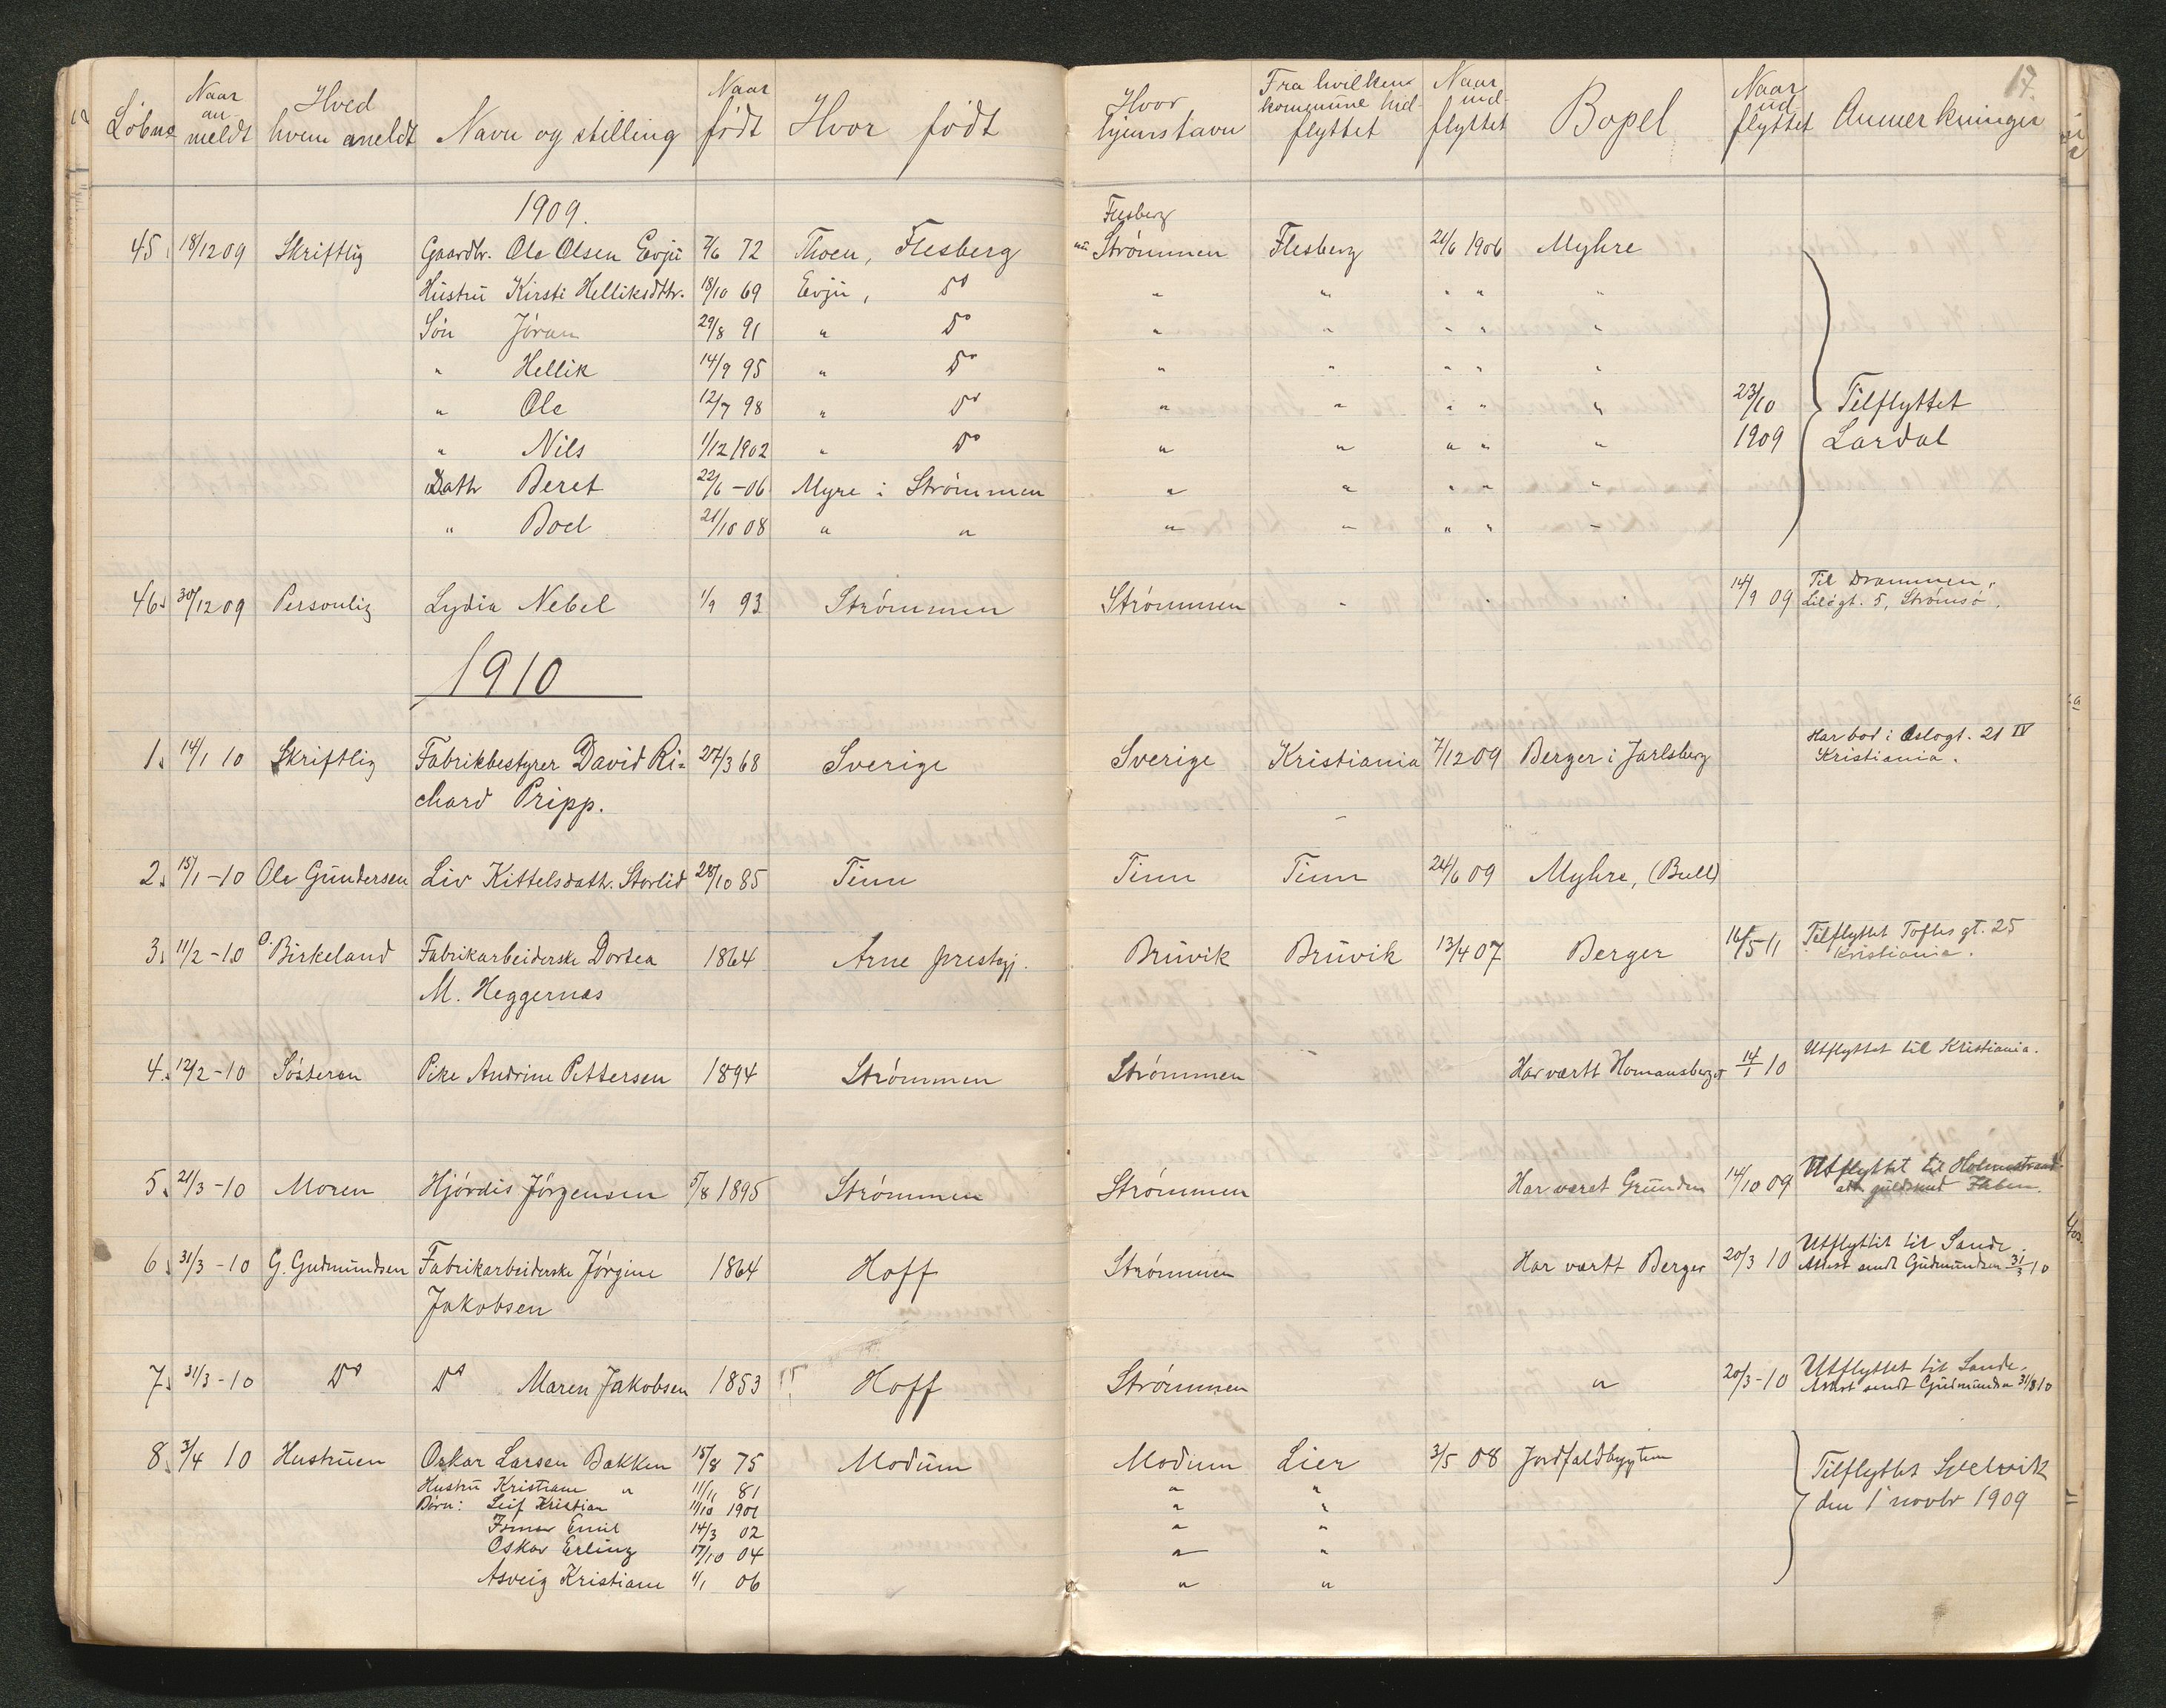 17.
Löbno Naar anmeldt Hved hvem aneldt Navn og stilling Naar født Hvor født Hvor hjemstavn Fra hvilken kommune hidflyttet Naar indflyttet Bopel Naar udflyttet Anmerkninger
1909.
Flesberg
45. 18/12 09 Skriftlig Gaardbr. Ole Olsen Evju 7/6 72 Thoen, Flesberg nu Strømmen Flesberg 21/6 1906 Myhre
Hustru Kirsti Helliksdttr. 18/10 69 Evju, Do " " " " "
Søn Jøran 29/8 91 " Do " " " " "
" Hellik 14/9 95 " Do " " " " "
" Ole 12/7 98 " Do " " " " " 23/10 Tilflyttet
" Nils 1/12 1902 " Do " " " " " 1909 Lardal
Dattr Beret 22/6 -06 Myre i Strømmen " " " " "
" Boel 21/10 08 " " " " " " "
46. 30/12 09 Personlig Lydia Nebel 1/9 93 Strømmen Strømmen " " " 14/9 09 Til Drammen,
Liløgt. 5, Strømsø.
1910
1. 14/1 10 Skriftlig Fabrikbestyrer David Ri- 24/3 68 Sverige Sverige Kristiania 7/12 09 Berger i Jarlsberg Har bod i Oslogt. 21 IV
chard Pripp. Kristiania.
2. 15/1 -10 Ole Gundersen Liv Kittelsdatr. Storlid 28/10 85 Tinn Tinn Tinn 24/6 09 Myhre, (Bull)
3. 11/2 -10 O. Birkeland Fabrikarbeiderske Dortea 1864 Arne prestgj. Bruvik Bruvik 13/4 07 Berger 16/5 11 Tilflyttet Toftes gt. 25
M. Heggernæs Kristiania.
4. 12/2 -10 Søsteren Pike Andrine Pettersen 1894 Strømmen Strømmen Har vært Homansberget 14/1 10 Utflyttet til Kristiania.
5. 21/3 -10 Moren Hjørdis Jørgensen 5/8 1895 Strømmen Strømmen Har været Grunden 14/10 09 Utflyttet til Holmestrand
adr. guldsmed
6. 31/3 -10 G. Gudmundsen Fabrikarbeiderske Jørgine 1864 Hoff Strømmen Har vært Berger 20/3 10 Utflyttet til Sande.
Jakobsen Attest sendt Gudmundsen 31/3 10
7. 31/3 -10 Do Do Maren Jakobsen 1853 Hoff Strømmen " 20/3 -10 Utflyttet til Sande.
Attest sendt Gudmundsen 31/3 10
8. 3/4 10 Hustruen Oskar Larsen Bakken 15/8 75 Modum Modum Lier 3/5 08 Jordfaldbygten Tilflyttet Svelvik
Hustru Kristiane " 11/11 81 " " den 1 novbr 1909
Børn: Leif Kristian 11/10 1901 " "
Emil 14/3 02 " "
Oskar Erling 17/10 04 " "
Asveig Kristiane 1/1 06 " "